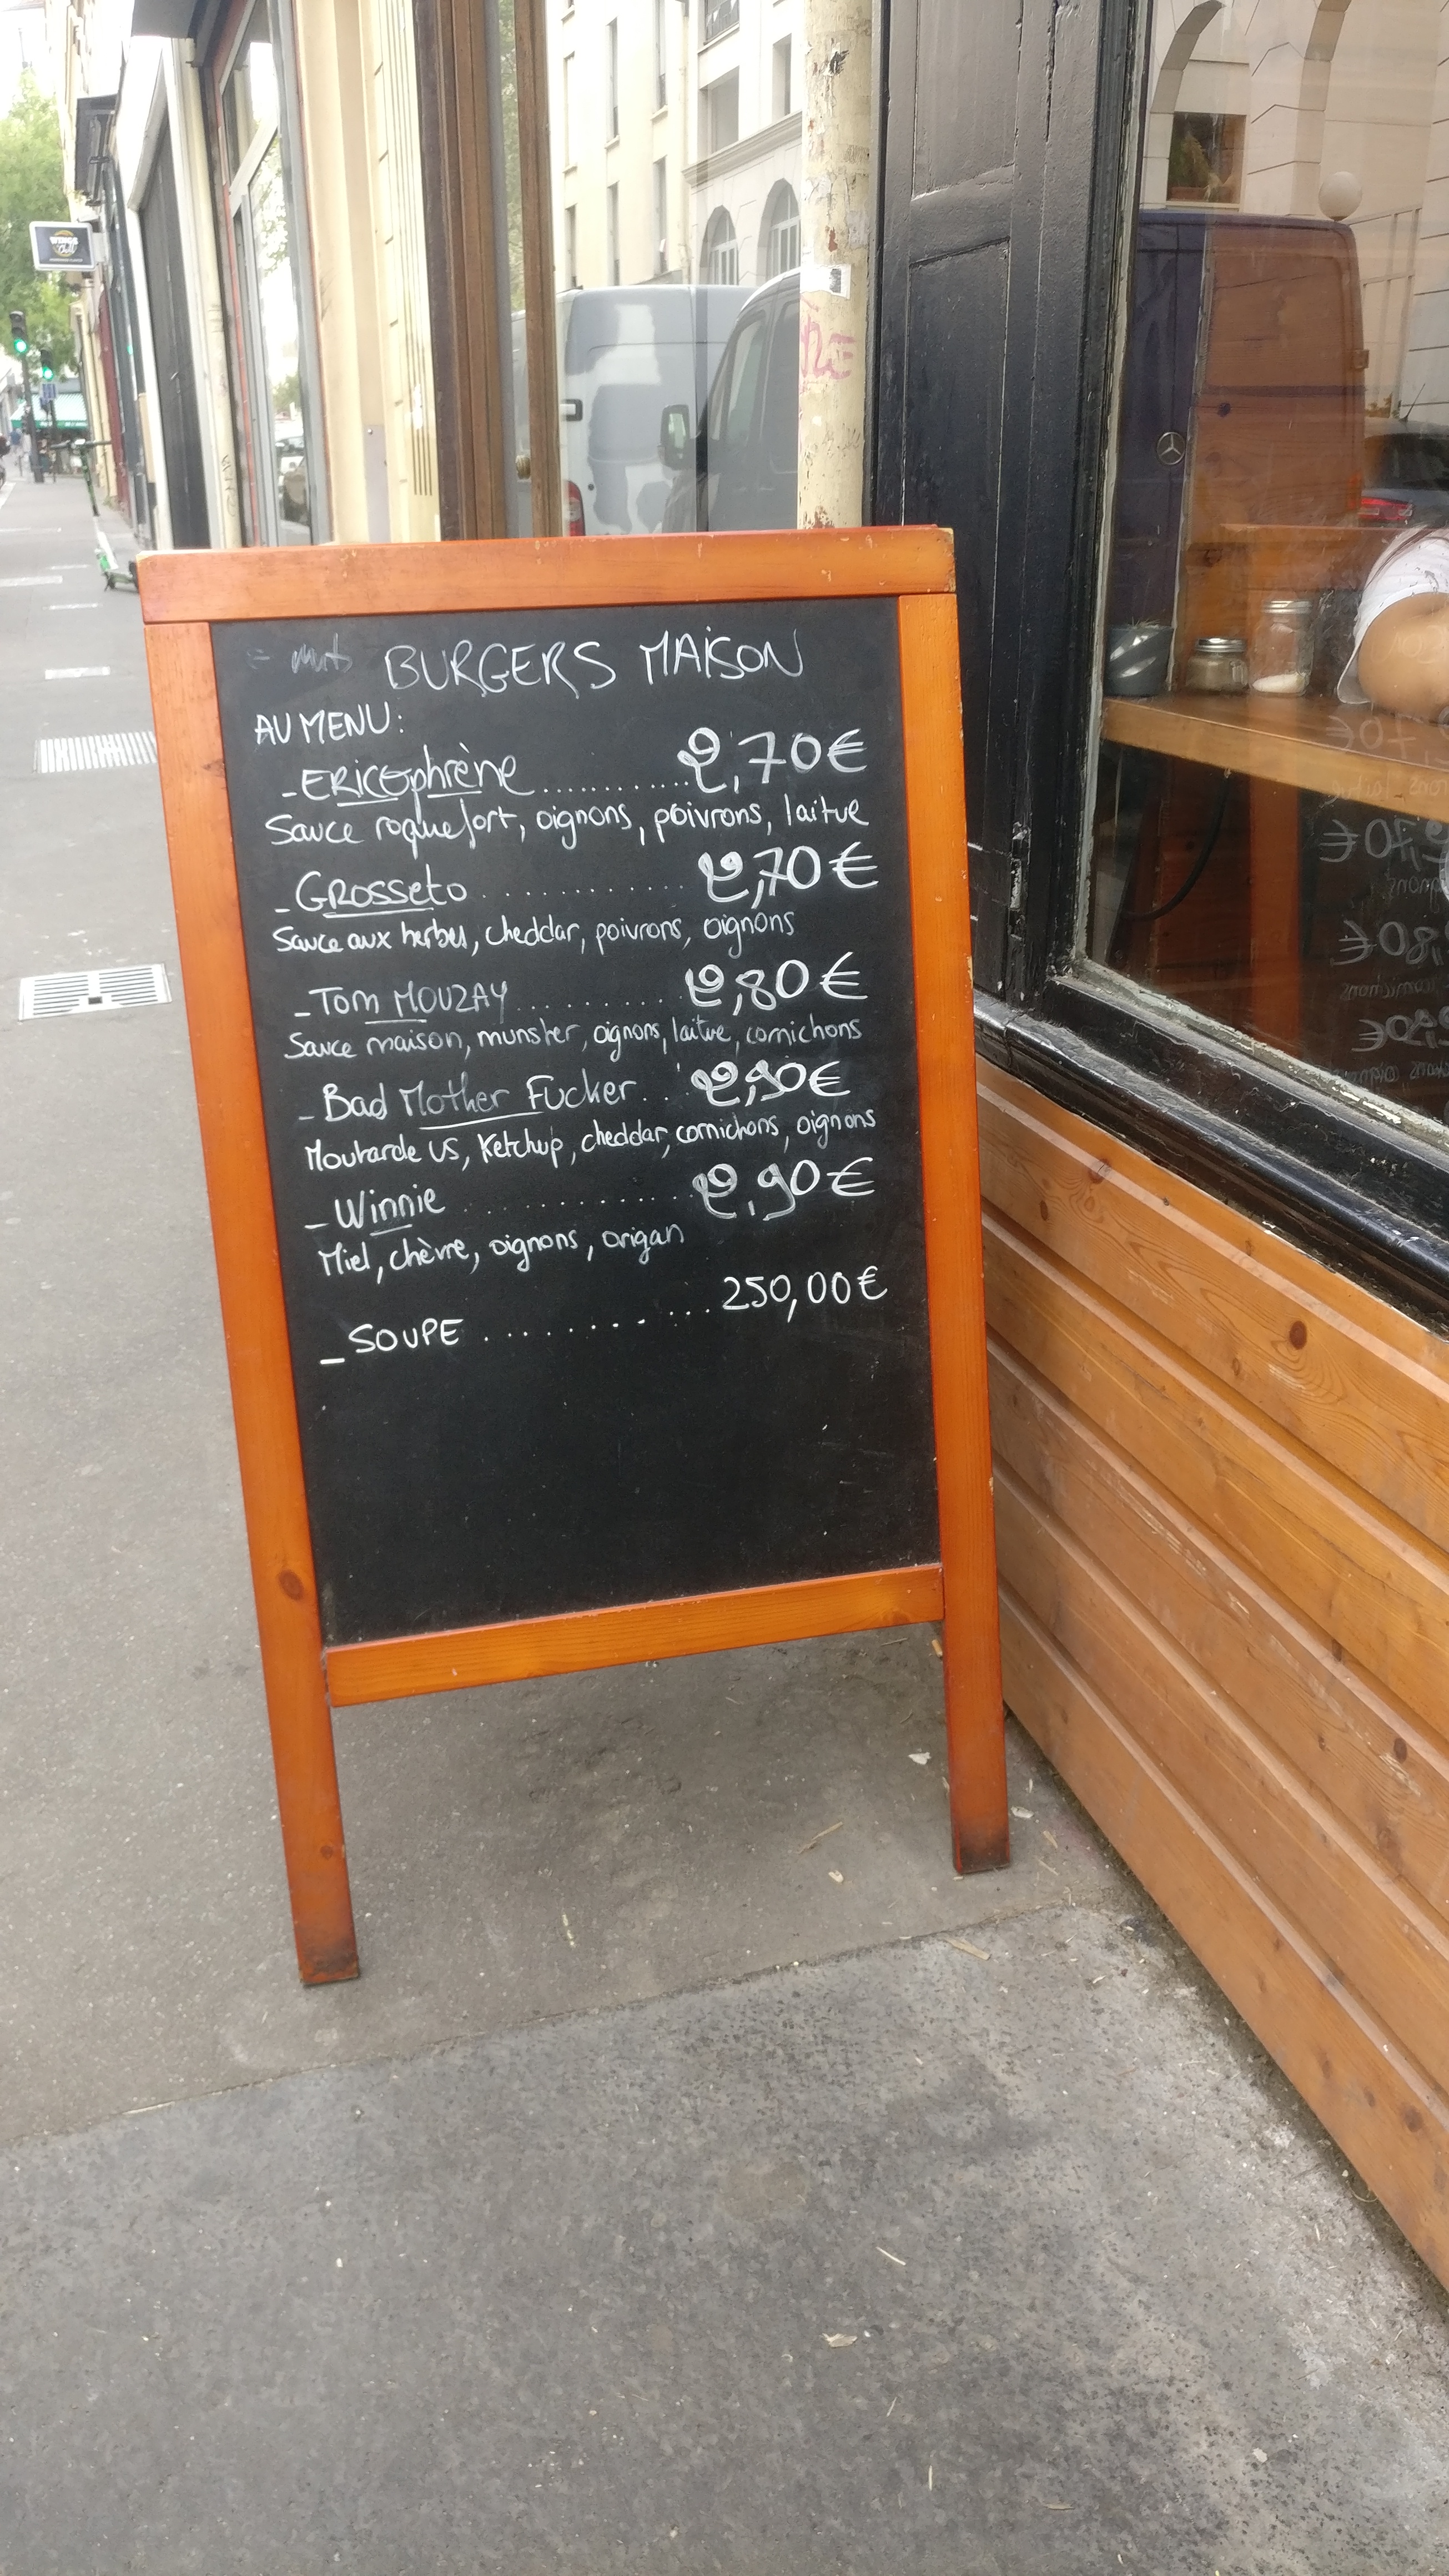 BURGERS MAISON
AU MENU:
_ERICOphrène............2,70€
Sauce roquefort, oignons, poivrons, laitue
_GROSSETO..............2,70€
Sauce aux herbes, cheddar, poivrons, oignons
_Tom MOUZAY...........2,80€
Sauce maison, munster, oignons, laitue, cornichons
_Bad Mother Fucker...2,90€
Moutarde US, Ketchup, cheddar, cornichons, oignons
_Winnie..............2,90€
Miel, chèvre, oignons, origan
_SOUPE...........250,00€